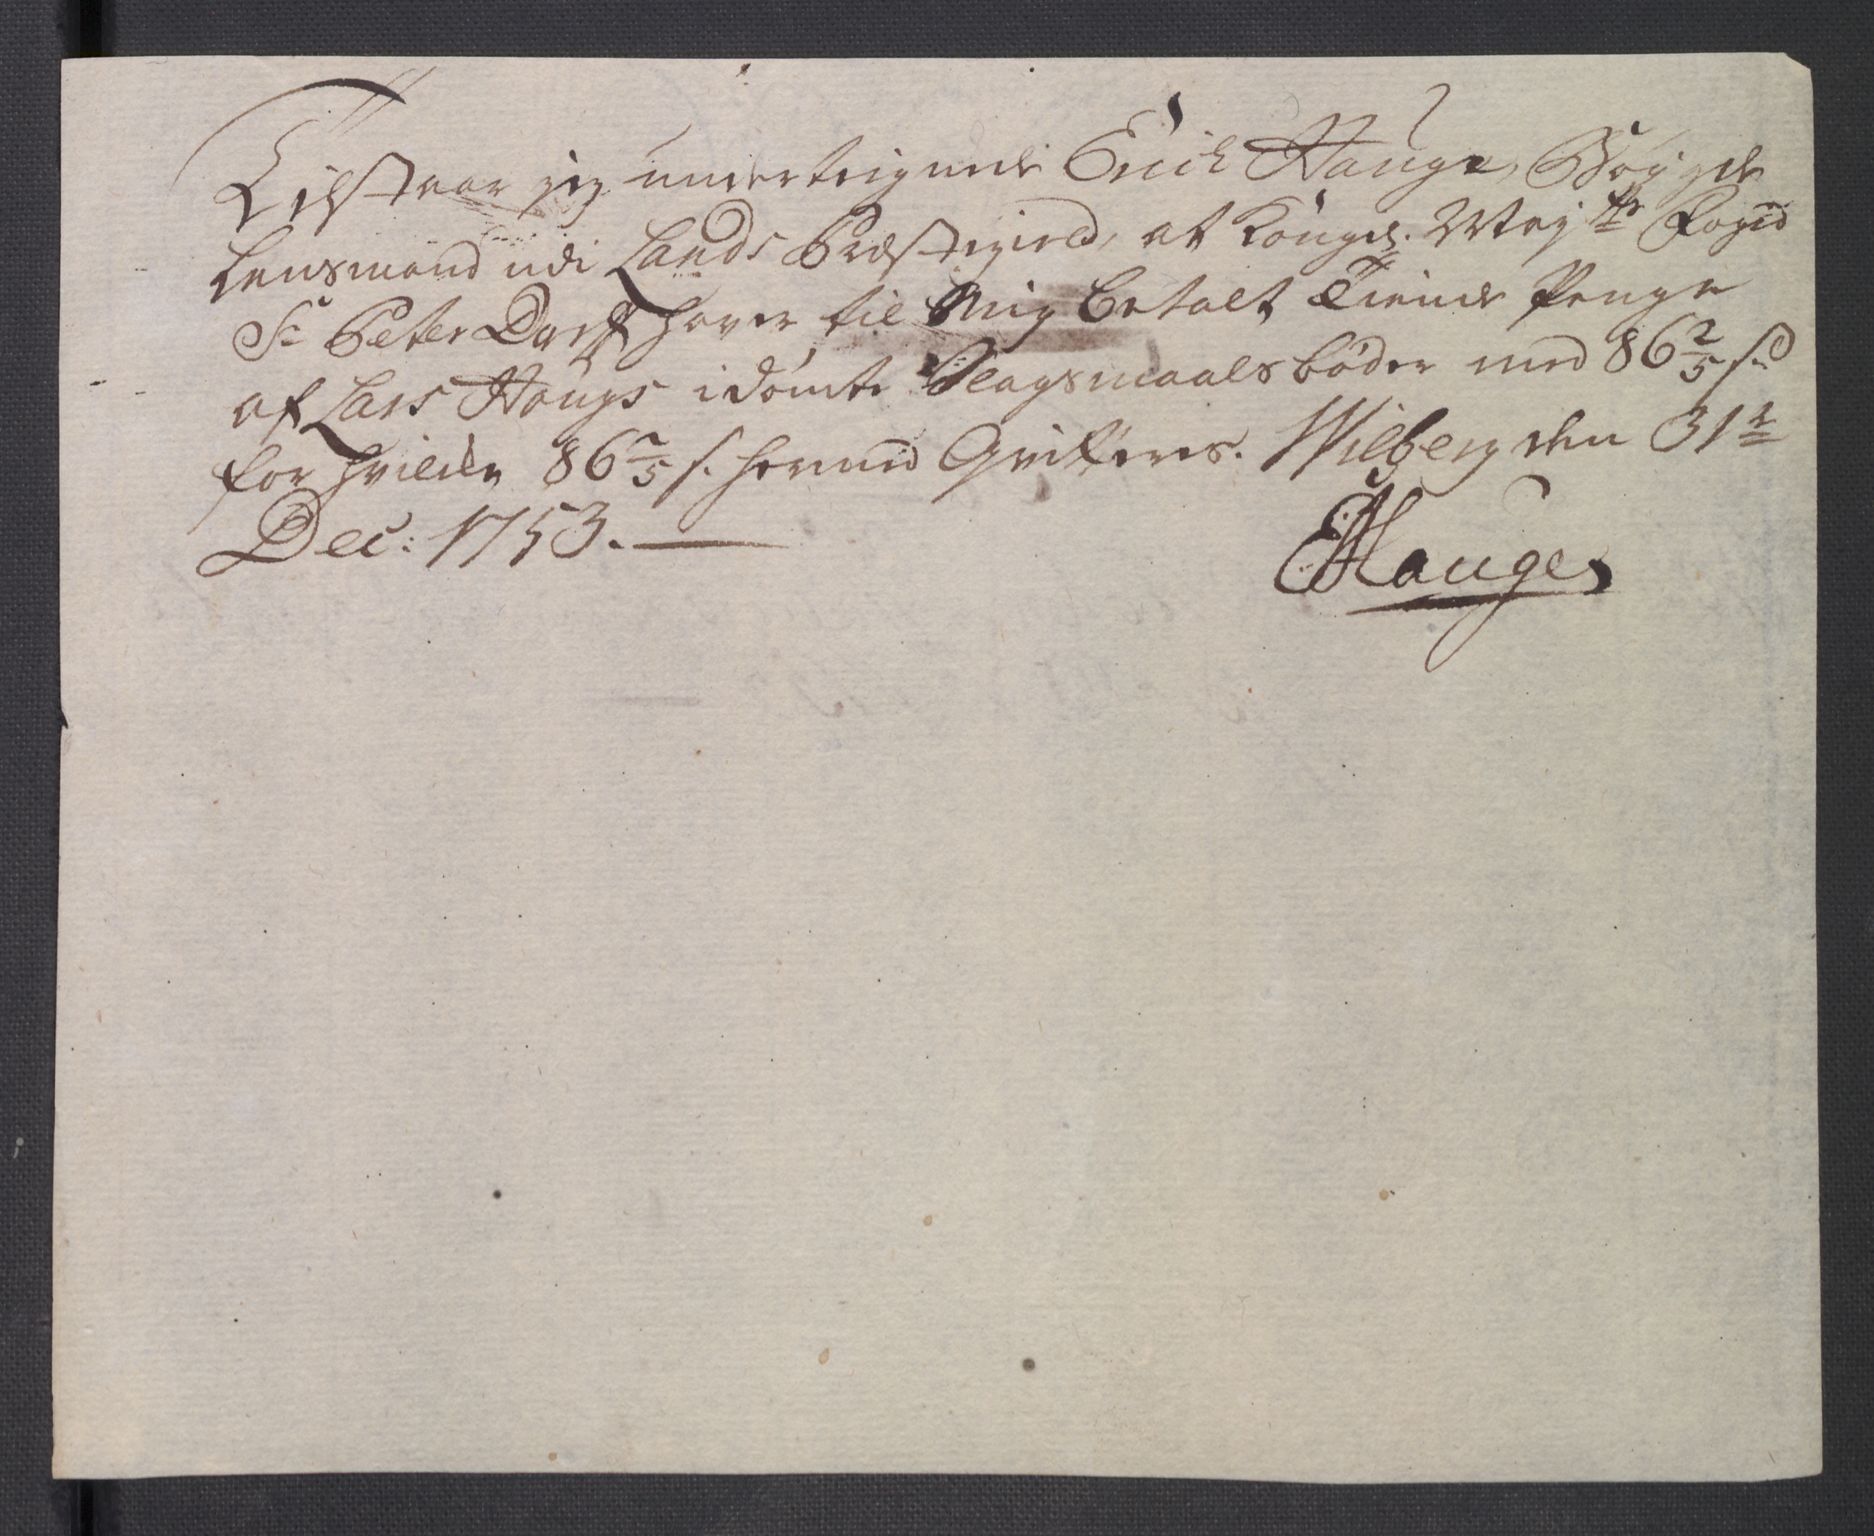 Tilstaar jeg underteignede Erich Hauge, Bøygde
Lensmand udi Lands Præstegield, at Kongel. Mayts Foged
Sr Peter Dorff haver til Mig betalt Tiende Penge
af Lars Haugs idømte Slagsmaals bøder med 86 2/5 s.
for hvilcke 86 2/5 s. hermed Qvitteres. Wilberg den 31te
Dec: 1753.
EHauge